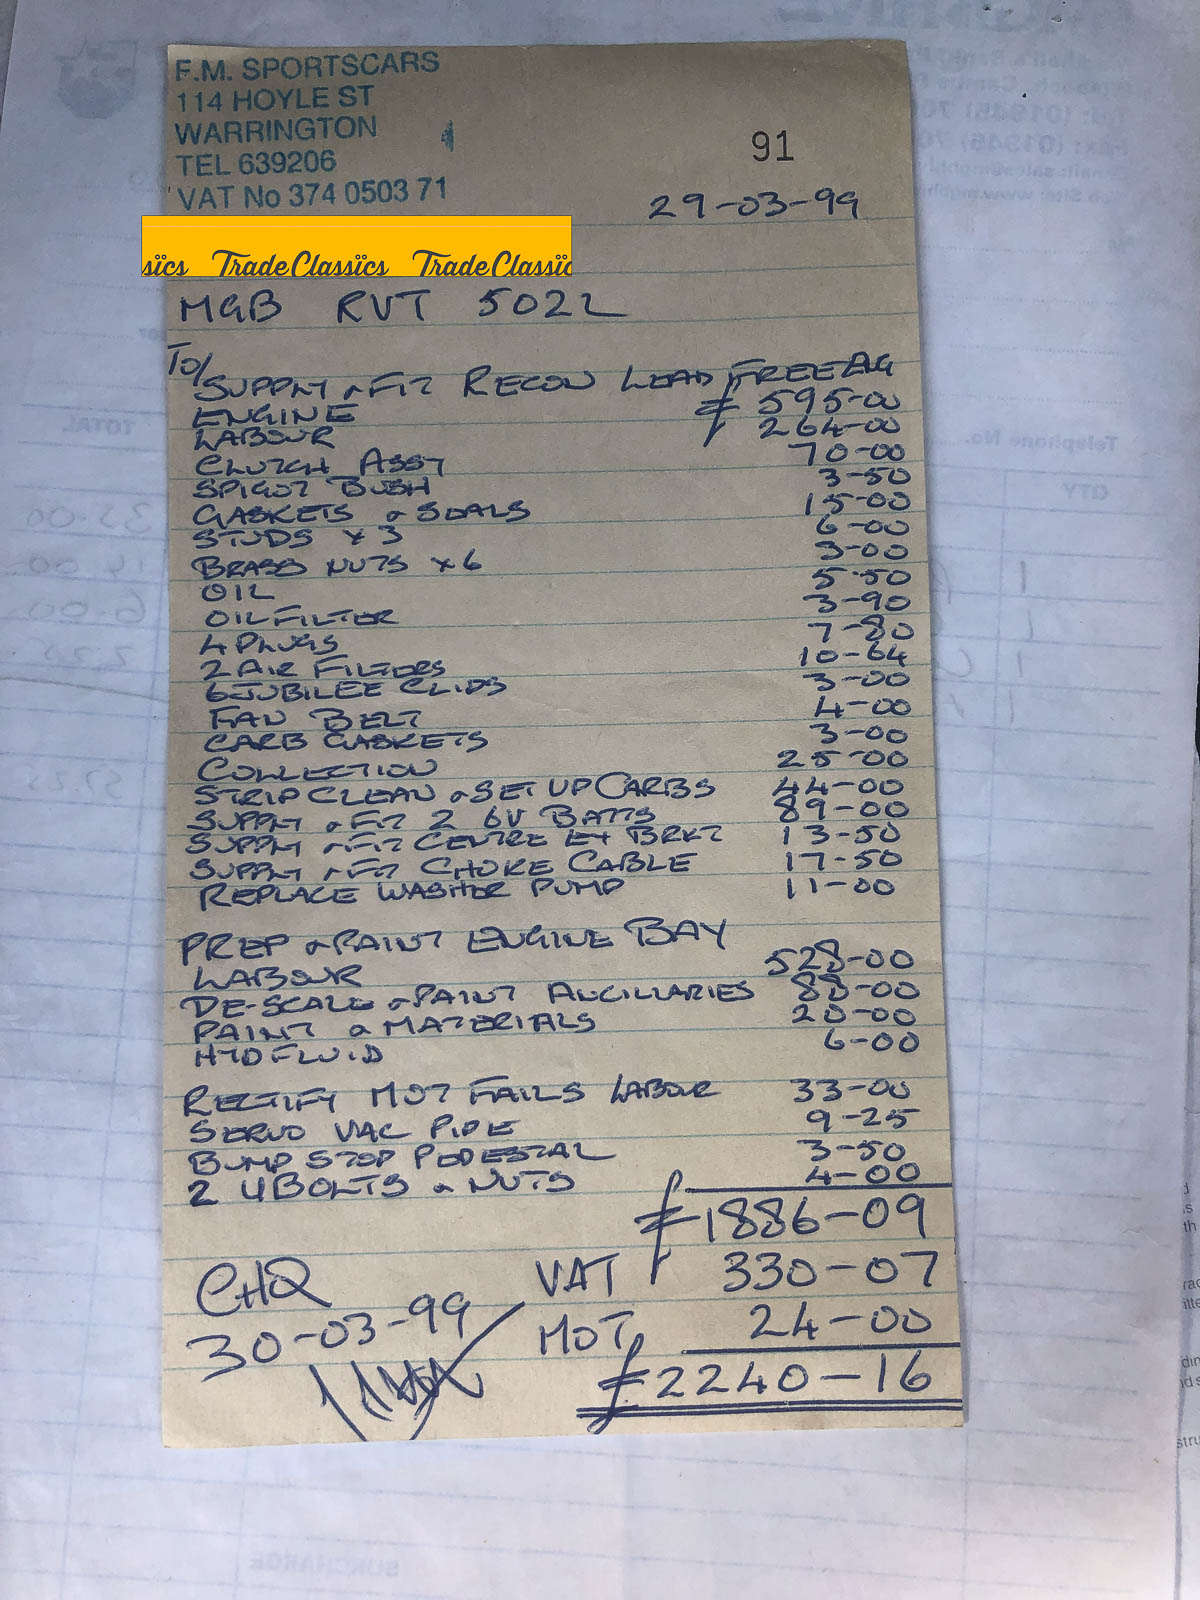 F.M. SPORTSCARS
114 HOYLE ST
WARRINGTON
TEL 639206
VAT No 374 0503 71
91
29-03-99
sïcs TradeClassïcs TradeClassïc
MGB RVT 502L
To/
SUPPLY & FIT RECON LEAD FREE
ENGINE £ 595-00
LABOUR 264-00
CLUTCH ASSY 70-00
SPIGOT BUSH 3-50
GASKETS & SEALS 15-00
STUDS x 3 6-00
BRASS NUTS x6 3-00
OIL 5-50
OIL FILTER 3-90
4 PLUGS 7-80
2 AIR FILTERS 10-64
6 JUBILEE CLIPS 3-00
FAN BELT 4-00
CARB GASKETS 3-00
COLLECTION 25-00
STRIP CLEAN & SET UP CARBS 44-00
SUPPLY & FIT 2 6V BATTS 89-00
SUPPLY & FIT CENTRE EX BRKT 13-50
SUPPLY & FIT CHOKE CABLE 17-50
REPLACE WASHER PUMP 11-00
PREP & PAINT ENGINE BAY
LABOUR 528-00
DE-SCALE & PAINT ANCILLARIES 88-00
PAINT & MATERIALS 20-00
HYD FLUID 6-00
RECTIFY MOT FAILS LABOUR 33-00
SERVO VAC PIPE 9-25
BUMP STOP PEDESTAL 3-50
2 U BOLTS & NUTS 4-00
£1886-09
VAT 330-07
MOT 24-00
£2240-16
CHQ
30-03-99